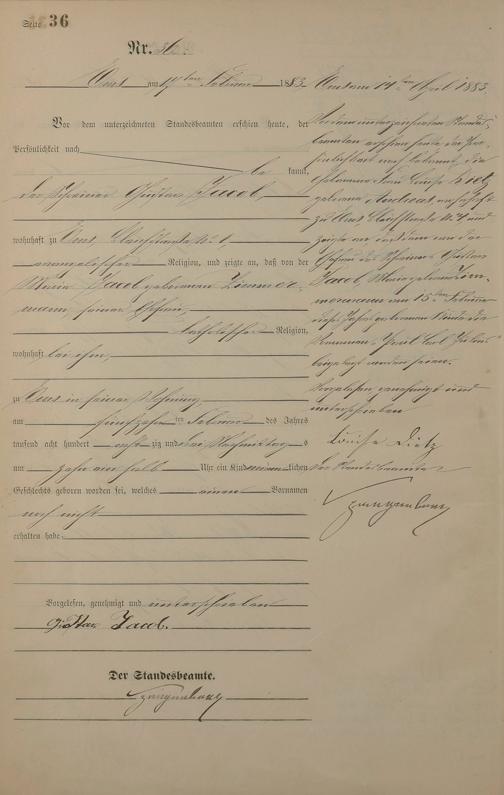 Seite 36
Nr. 36
Ems am 17ten Februar 1883
Vor dem unterzeichneten Standesbeamten erschien heute, der
Persönlichkeit nach
be kannt,
der Schreiner Gustav Jacob,
wohnhaft zu Ems,
evangelischer Religion, und zeigte an, daß von der
Maria Jacob geborenen Zimmer-
mann, seiner Ehefrau,
katholischer Religion,
wohnhaft bei ihm,
zu Ems in seiner Wohnung,
am fünfzehnten Februar des Jahres
tausend acht hundert achtzig und drei Vormittags
um zehn ein halb Uhr ein Kind männlichen
Geschlechts geboren worden sei, welches einen Vornamen
noch nicht
erhalten habe.
Vorgelesen, genehmigt und unterschrieben
Gustav Jacob.
Der Standesbeamte.
Ems am 14ten April 1883.
Vor dem unterzeichneten Standes-
beamten erschien heute, der Per-
sönlichkeit nach bekannt, die
Hebamme Louise Dietz
geborene Andreas, wohnhaft
zu Ems,
und
zeigte an, daß dem von der
Ehefrau des Schreiners Gustav
Jacob, Maria geborene Zim-
mermann am 15ten Februar
dieses Jahres geborenen Kinde die
Vornamen Carl
beigelegt worden seien.
Vorgelesen, genehmigt und
unterschrieben
Louise Dietz
Der Standesbeamte